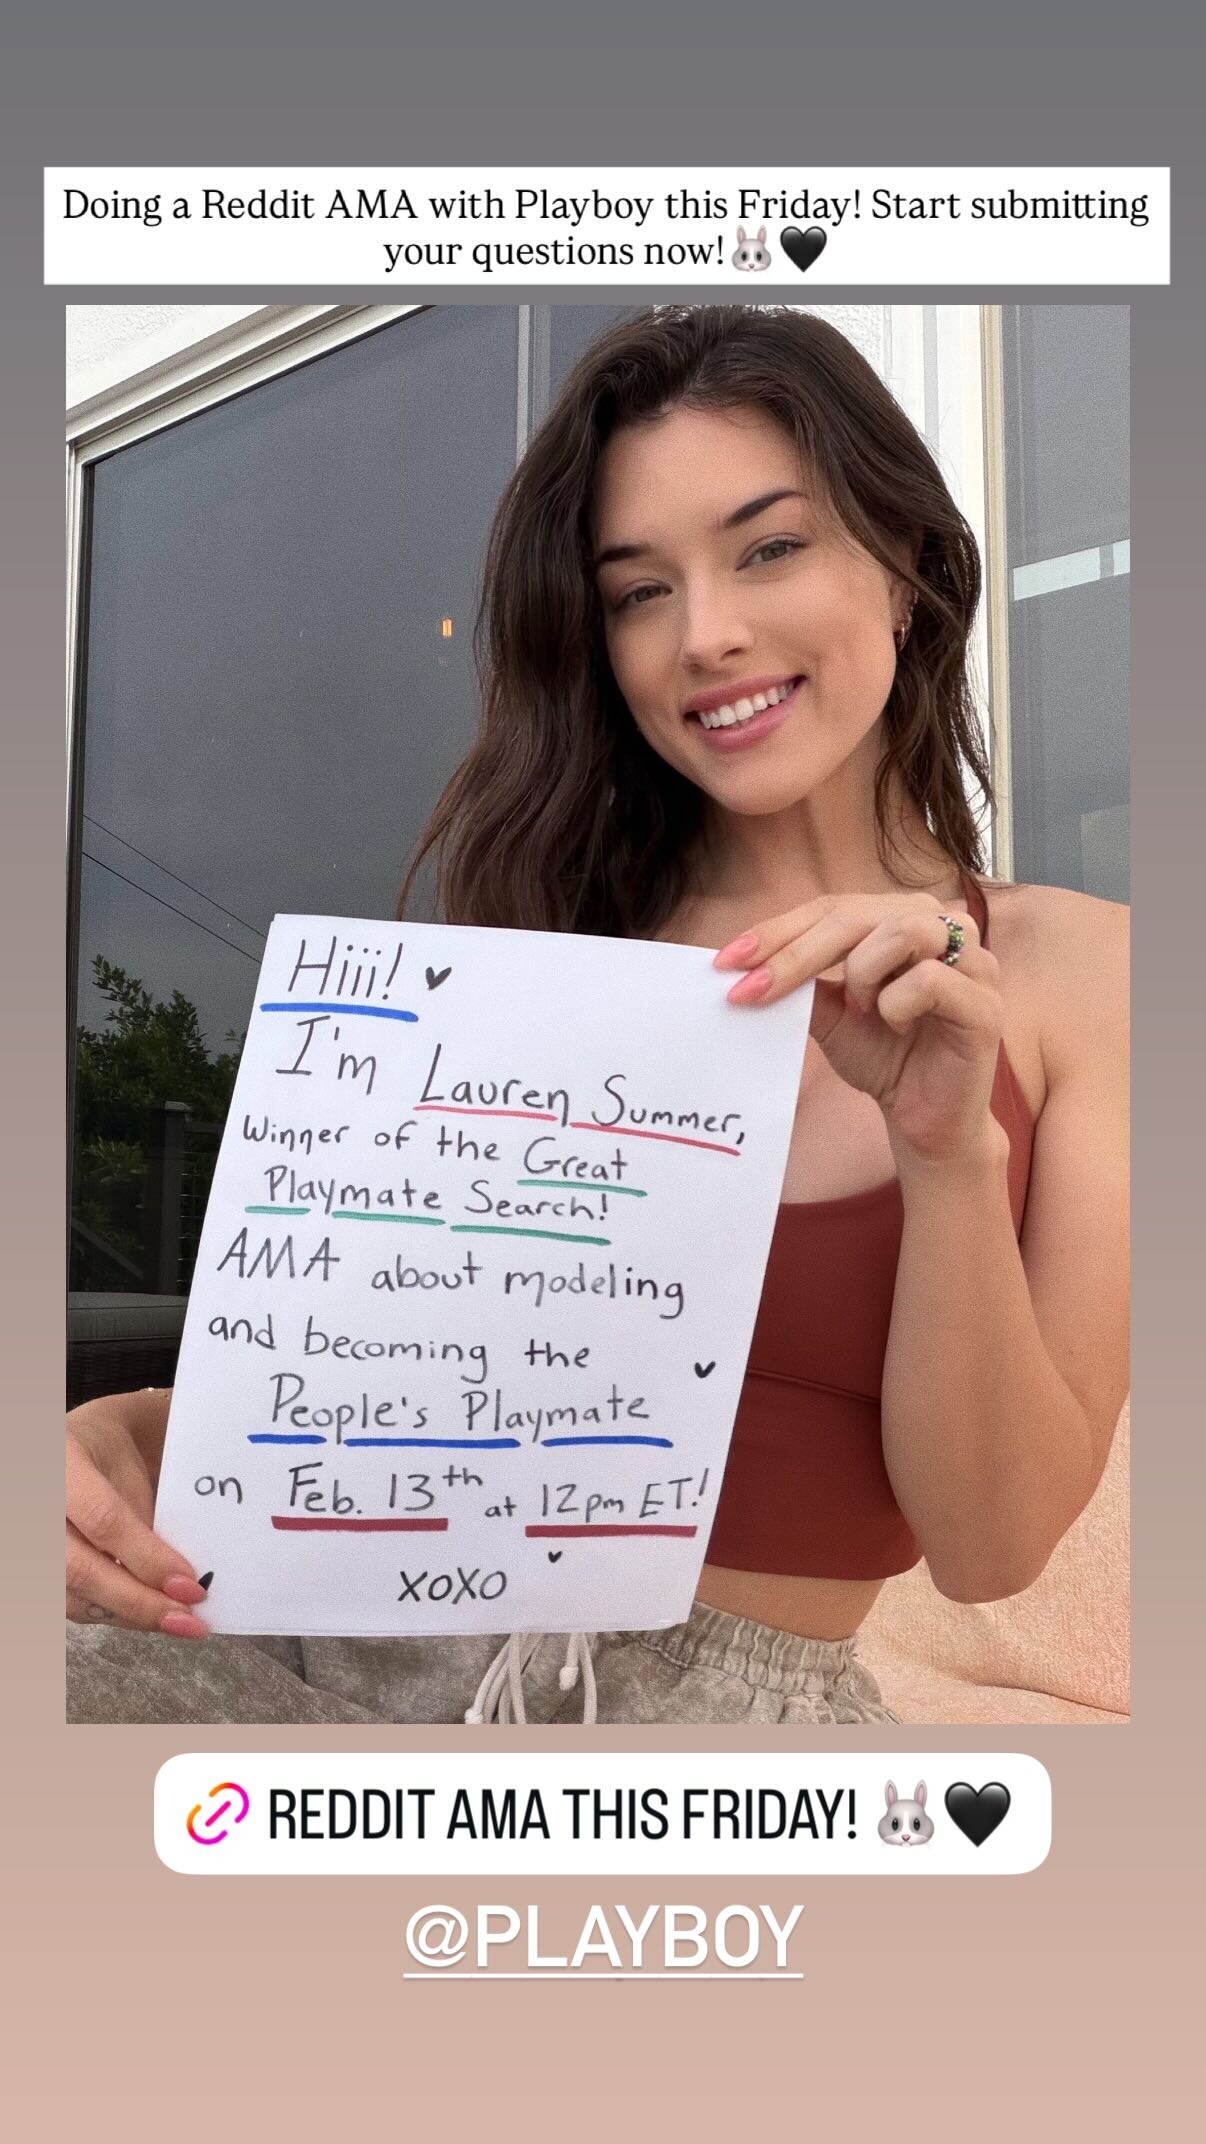 Doing a Reddit AMA with Playboy this Friday! Start submitting
your questions now!🐰🖤
Hiii! ♥
I'm Lauren Summer,
Winner of the Great
Playmate Search!
AMA about modeling
and becoming the ♥
People's Playmate
on Feb. 13th at 12pm ET!
♥
XOXO
♥
REDDIT AMA THIS FRIDAY! 🐰🖤
@PLAYBOY